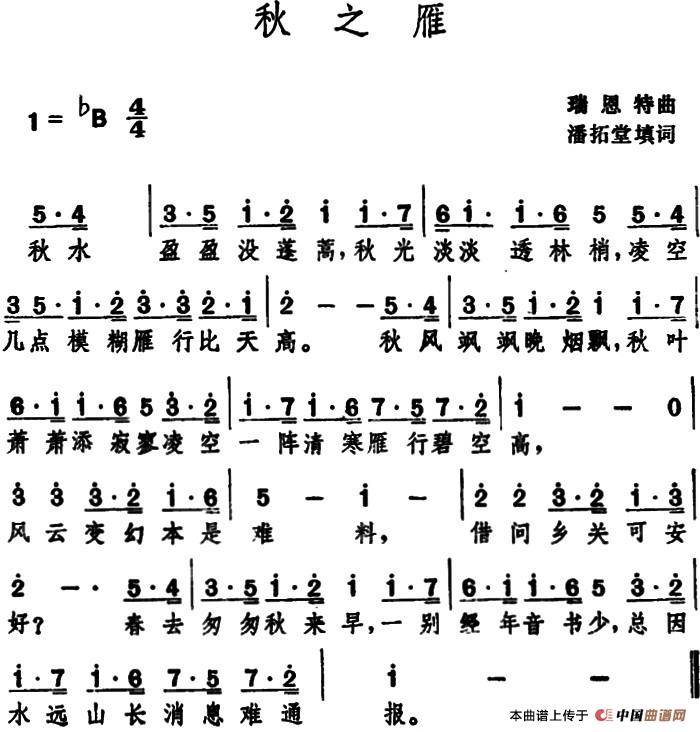 秋之雁
1= ♭B 4/4
瑞恩特曲
潘拓堂填词
5·4 | 3·5 i·2̇ i i·7 | 6·i i·6 5 5·4
秋水 盈盈没蓬蒿,秋光 淡淡 透林梢,凌空
3 5·i i·2̇ 3̇·3̇ 2̇·i | 2̇ - - 5·4 | 3·5 i·2̇ i i·7
几点模糊雁行比天高。 秋风飒飒晚烟飘,秋叶
6·i i·6 5 3̇·2̇ | i·7 i·6 7·5 7·2̇ | i - - 0
萧萧添寂寥凌空一阵清寒雁行碧空高,
3̇ 3̇ 3̇·2̇ i·6 | 5 - i - | 2̇ 2̇ 3̇·2̇ i·3̇
风云变幻本是难 料, 借问乡关可安
2̇ - · 5·4 | 3·5 i·2̇ i i·7 | 6·i i·6 5 3̇·2̇
好? 春去匆匆秋来早,一别经年音书少,总因
i·7 i·6 7·5 7·2̇ | i -
水远山长消息难通 报。
本曲谱上传于 中国曲谱网